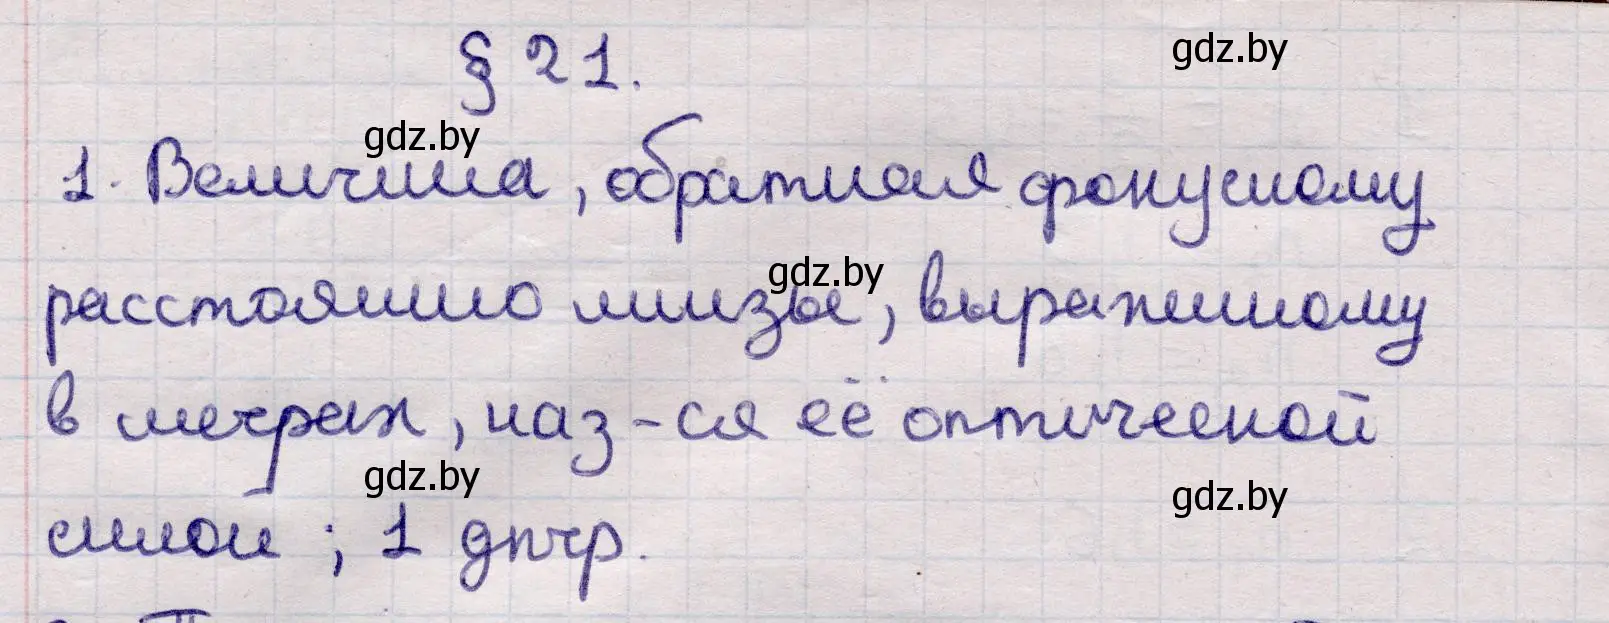 § 21.
gdz.by
gdz.by
1. Величина, обратная фокусному
gdz.by
расстоянию линзы, выраженному
в метрах, наз-ся её оптической
gdz.by
gdz.by
силой; 1 дптр.